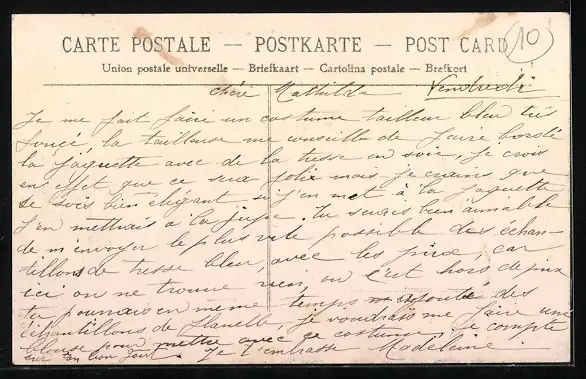 CARTE POSTALE — POSTKARTE — POST CARD
10
Union postale universelle — Briefkaart — Cartolina postale — Brefkort
Chère Mathilde Vendredi
Je me fait faire un costume tailleur bleu très
foncé, la tailleuse me conseille de faire bordé
la jaquette avec de la tresse en soie, je crois
en effet que ce sera jolie mais je crains que
se sois bien élégant, si j'en met à la jaquette
j'en mettrais à la jupe. Tu serais bien aimable
de m'envoyer le plus vite possible des échan-
tillons de tresse bleu, avec les prix, car
ici on ne trouve rien, ou c'est hors de prix
tu pourrais en même temps des
échantillons de flanelle, je voudrais me faire une
blouse pour mettre avec ce costume, je compte
sur ton bon goût. Je t'embrasse Madeleine.